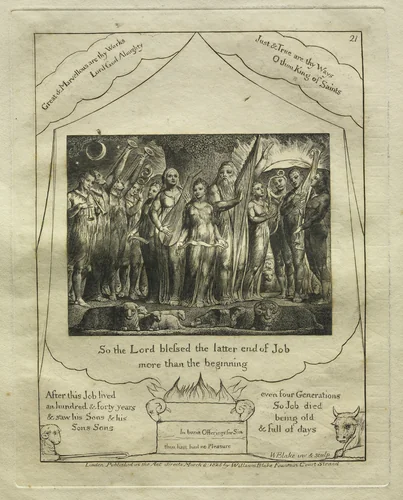 21
Great & Marvellous are thy Works
Lord God Almighty
Just & True are thy Ways
O thou King of Saints
So the Lord blessed the latter end of Job
more than the beginning
After this Job lived
an hundred & forty years
& saw his Sons & his
Sons Sons
even four Generations
So Job died
being old
& full of days
In burnt Offerings for Sin
thou hast had no Pleasure
WBlake inv & sculp
London. Published as the Act directs March 8 1825 by William Blake Fountain Court Strand